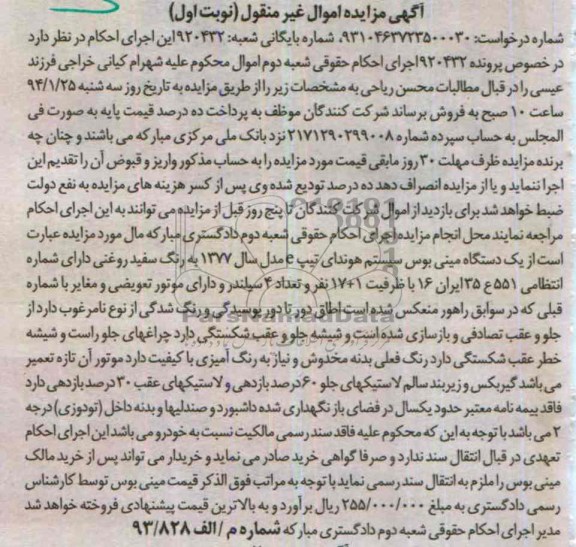 آگهی مزایده اموال غیر منقول (نوبت اول)
شماره درخواست: ۹۳۱۰۴۶۳۷۲۳۵۰۰۰۳۰، شماره بایگانی شعبه: ۹۲۰۴۳۲ این اجرای احکام در نظر دارد
در خصوص پرونده ۹۲۰۴۳۲ اجرای احکام حقوقی شعبه دوم اموال محکوم علیه شهرام کیانی خراجی فرزند
عیسی را در قبال مطالبات محسن ریاحی به مشخصات زیر را از طریق مزایده به تاریخ روز سه شنبه ۹۴/۱/۲۵
ساعت ۱۰ صبح به فروش برساند شرکت کنندگان موظف به پرداخت ده درصد قیمت پایه به صورت فی
المجلس به حساب سپرده شماره ۲۱۷۱۲۹۰۲۹۹۰۰۸ نزد بانک ملی مرکزی مبارکه می باشند و چنان چه
برنده مزایده ظرف مهلت ۳۰ روز مابقی قیمت مورد مزایده را به حساب مذکور واریز و قبوض آن را تقدیم این
اجرا ننماید و یا از مزایده انصراف دهد ده درصد تودیع شده وی پس از کسر هزینه های مزایده به نفع دولت
ضبط خواهد شد برای بازدید از اموال شرکت کنندگان تا پنج روز قبل از مزایده می توانند به این اجرای احکام
مراجعه نمایند محل انجام مزایده اجرای احکام حقوقی شعبه دوم دادگستری مبارکه مال مورد مزایده عبارت
است از یک دستگاه مینی بوس سیستم هوندای تیپ e مدل سال ۱۳۷۷ به رنگ سفید روغنی دارای شماره
انتظامی ۵۵۱ ع ۳۵ ایران ۱۶ با ظرفیت ۱+۱۷ نفر و تعداد ۴ سیلندر و دارای موتور تعویضی و مغایر با شماره
قبلی که در سوابق راهور منعکس شده است اطاق دور تا دور پوسیدگی و رنگ شدگی از نوع نامرغوب دارد از
جلو و عقب تصادفی و بازسازی شده است و شیشه جلو و عقب شکستگی دارد چراغهای جلو راست و شیشه
خطر عقب شکستگی دارد رنگ فعلی بدنه مخدوش و نیاز به رنگ آمیزی با کیفیت دارد موتور آن تازه تعمیر
می باشد گیربکس و زیربند سالم لاستیکهای جلو ۶۰ درصد بازدهی و لاستیکهای عقب ۳۰ درصد بازدهی دارد
فاقد بیمه نامه معتبر حدود یکسال در فضای باز نگهداری شده داشبورد و صندلیها و بدنه داخل (تودوزی) درجه
۲ می باشد با توجه به این که محکوم علیه فاقد سند رسمی مالکیت نسبت به خودرو می باشد این اجرای احکام
تعهدی در قبال انتقال سند ندارد و صرفا گواهی خرید صادر می نماید و خریدار می تواند پس از خرید مالک
مینی بوس را ملزم به انتقال سند رسمی نماید با توجه به مراتب فوق الذکر قیمت مینی بوس توسط کارشناس
رسمی دادگستری به مبلغ ۲۵۵/۰۰۰/۰۰۰ ریال برآورد و به بالاترین قیمت پیشنهادی فروخته خواهد شد
مدیر اجرای احکام حقوقی شعبه دوم دادگستری مبارکه شماره م / الف ۹۳/۸۲۸